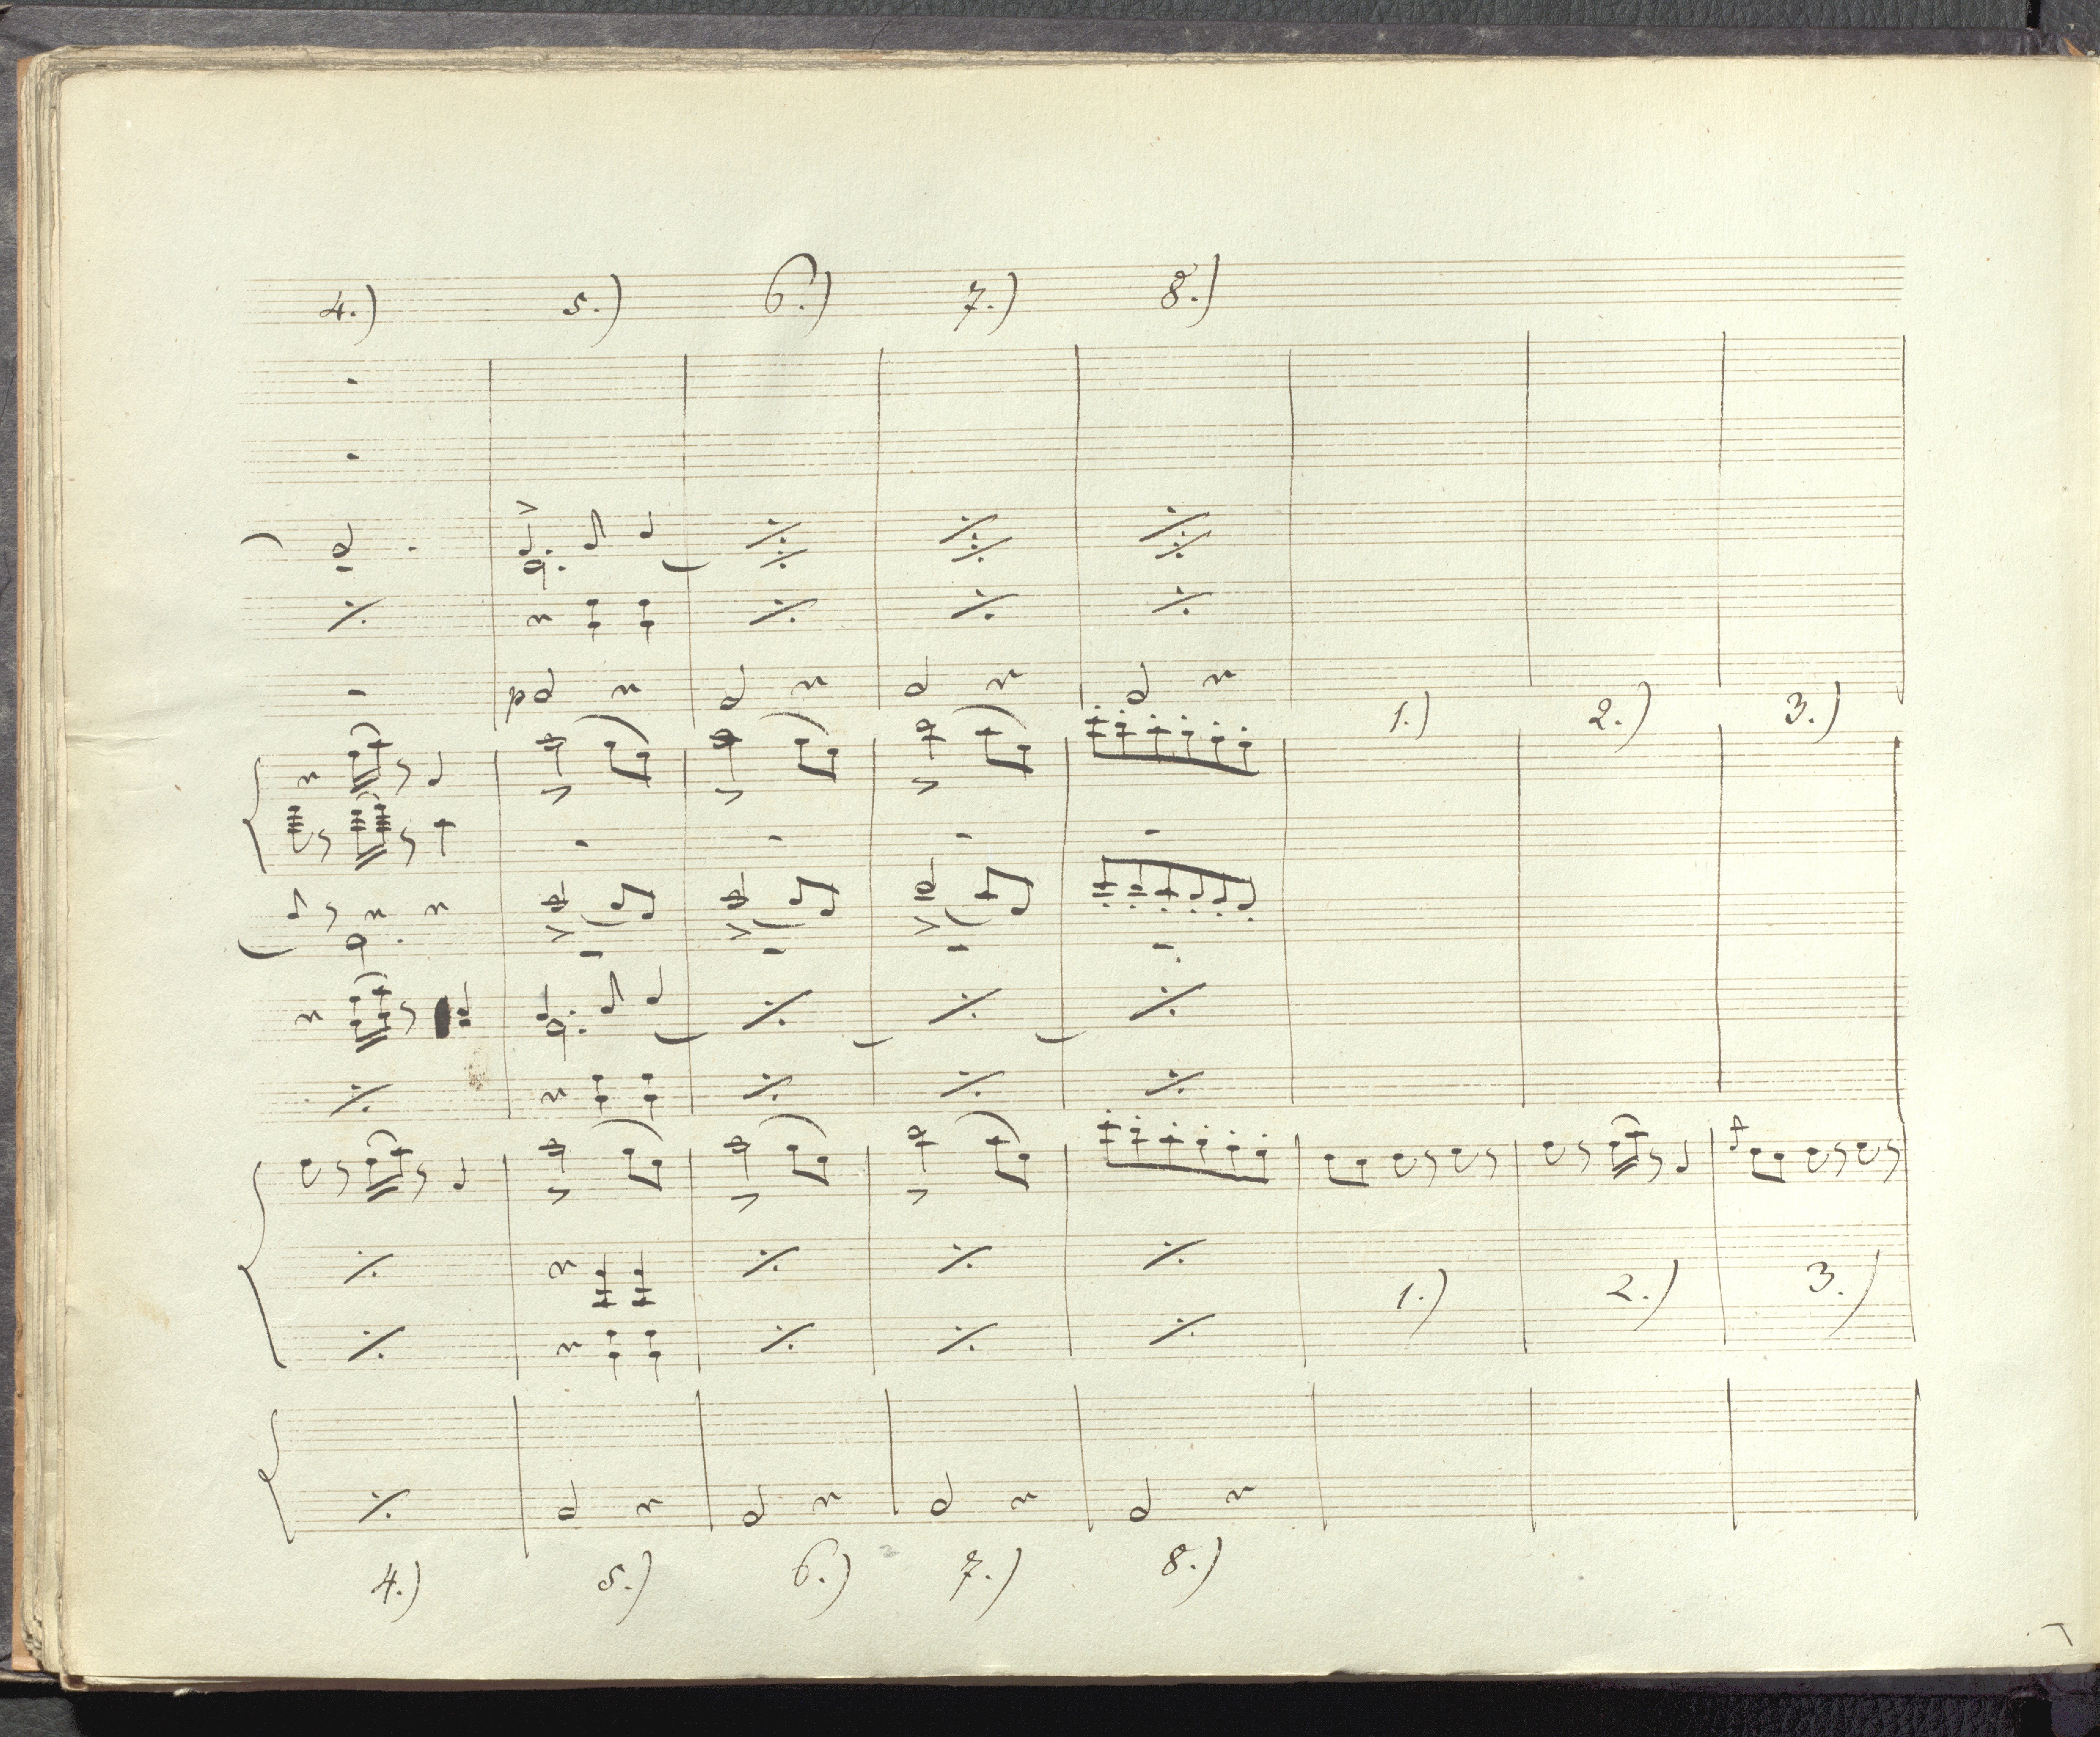 4.) 5.) 6.) 7.) 8.)
p
1.) 2.) 3.)
1.) 2.) 3.)
4.) 5.) 6.) 7.) 8.)